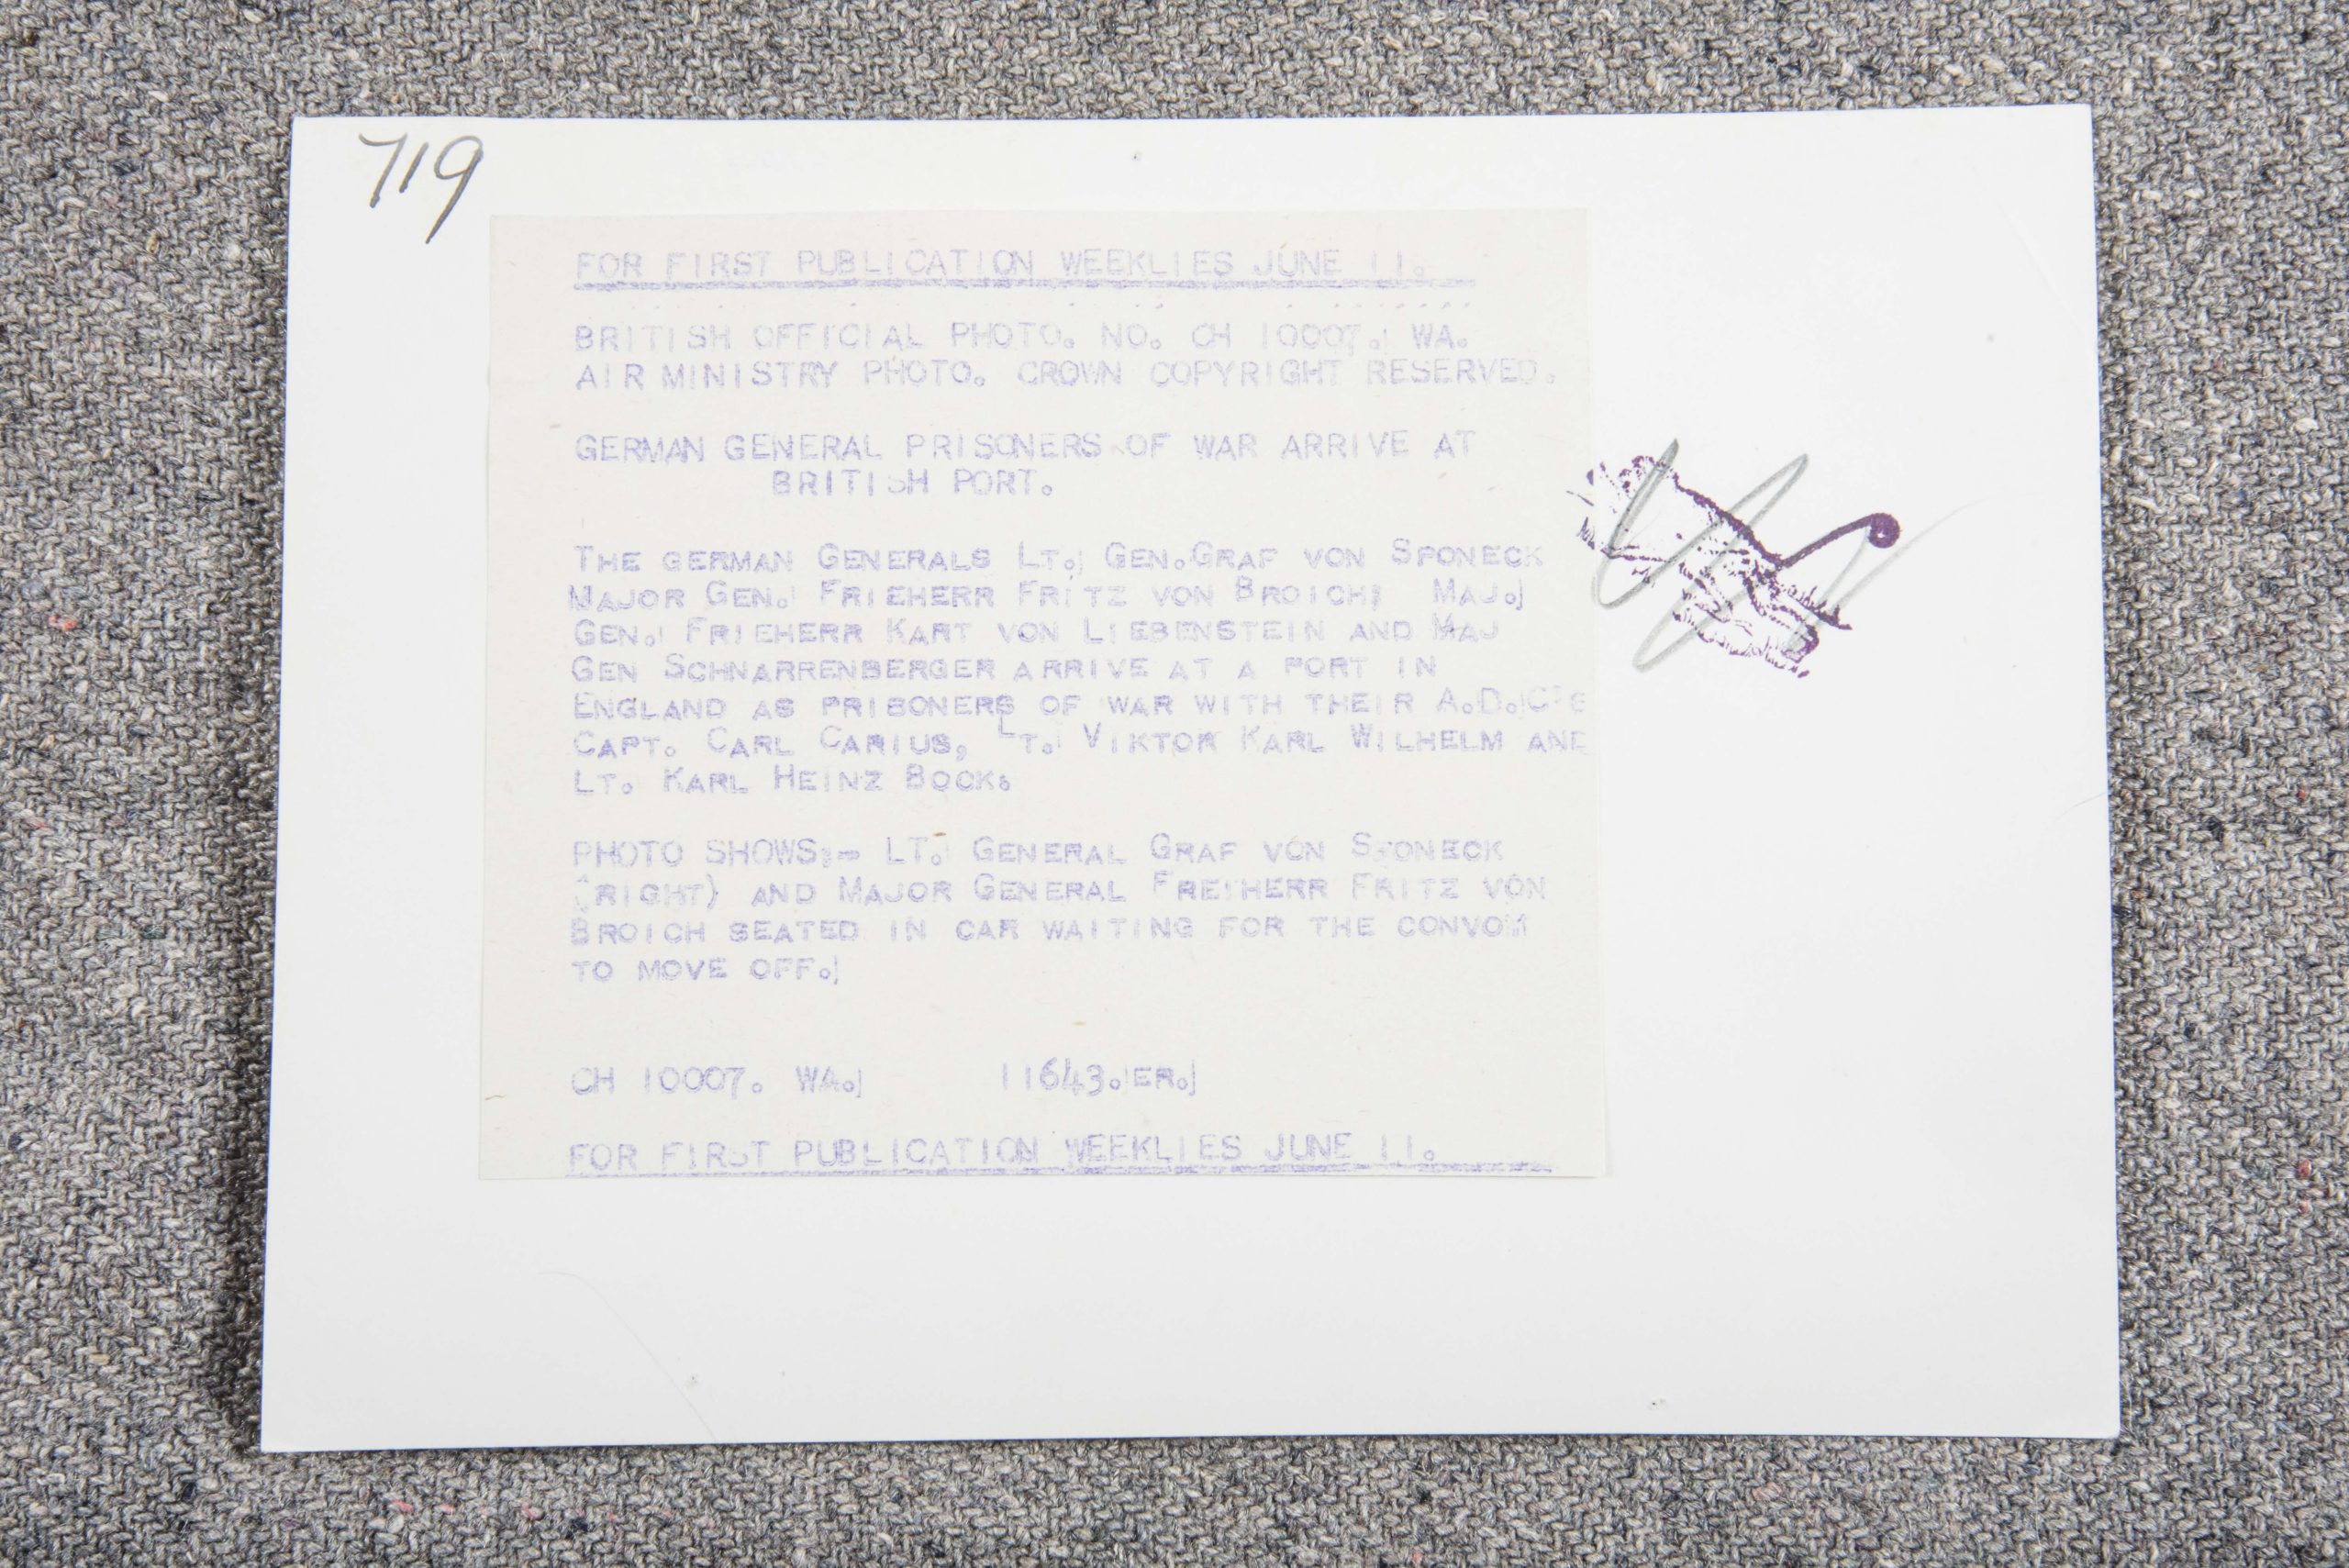 719
FOR FIRST PUBLICATION WEEKLIES JUNE 11.
BRITISH OFFICIAL PHOTO. NO. CH 10007. WA.
AIR MINISTRY PHOTO. CROWN COPYRIGHT RESERVED.
GERMAN GENERAL PRISONERS OF WAR ARRIVE AT
BRITISH PORT.
THE GERMAN GENERALS LT. GEN. GRAF VON SPONECK
MAJOR GEN. FRIEHERR FRITZ VON BROICH; MAJ.
GEN. FRIEHERR KART VON LIEBENSTEIN AND MAJ
GEN SCHNARRENBERGER ARRIVE AT A PORT IN
ENGLAND AS PRISONERS OF WAR WITH THEIR A.D.C'S
CAPT. CARL CARIUS, LT. VIKTOR KARL WILHELM AND
LT. KARL HEINZ BOCK.
PHOTO SHOWS:- LT. GENERAL GRAF VON SPONECK
(RIGHT) AND MAJOR GENERAL FREIHERR FRITZ VON
BROICH SEATED IN CAR WAITING FOR THE CONVOM
TO MOVE OFF.
CH 10007. WA. 11643. ER.
FOR FIRST PUBLICATION WEEKLIES JUNE 11.